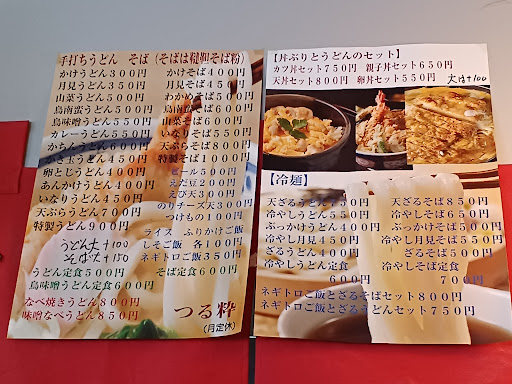 手打ちうどん そば(そばは韃靼そば粉)
かけうどん300円
月見うどん350円
山菜うどん500円
鳥南蛮うどん500円
鳥味噌うどん550円
カレーうどん550円
かちんうどん600円
かき玉うどん450円
卵とじうどん400円
あんかけうどん400円
いなりうどん450円
天ぷらうどん700円
特製うどん900円
うどん大+100
そば大+150
うどん定食500円
鳥味噌うどん定食600円
なべ焼きうどん800円
味噌なべうどん850円
かけそば400円
月見そば450円
わかめそば500円
鳥南蛮そば600円
山菜そば600円
いなりそば550円
天ぷらそば800円
特製そば1000円
ビール500円
えだ豆200円
えび天300円
のりチーズ天300円
つけもの100円
ライス ふりかけご飯
しそご飯 各100円
ネギトロご飯350円
そば定食600円
つる粋
(月定休)
【丼ぶりとうどんのセット】
カツ丼セット750円 親子丼セット650円
天丼セット800円 卵丼セット550円
大汁+100
【冷麺】
天ざるうどん750円
冷やしうどん550円
ぶっかけうどん400円
冷やし月見450円
ざるうどん400円
冷やしうどん定食
600円
天ざるそば850円
冷やしそば650円
ぶっかけそば500円
冷やし月見そば550円
ざるそば500円
冷やしそば定食
700円
ネギトロご飯とざるそばセット800円
ネギトロご飯とざるうどんセット750円